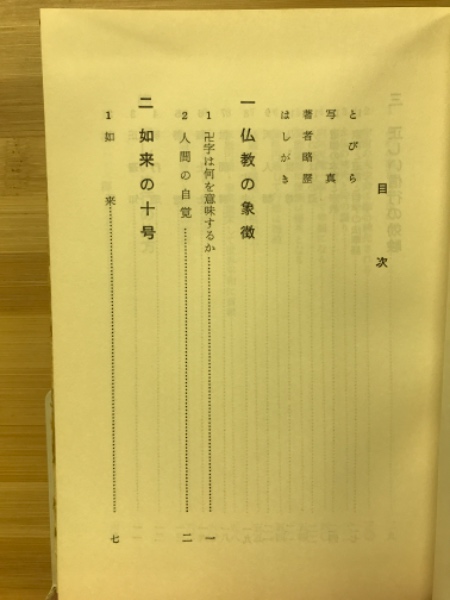 目次
とびら
写真
著者略歴
はしがき
一 仏教の象徴
1 卍字は何を意味するか……一
2 人間の自覚……二
二 如来の十号
1 如来……七